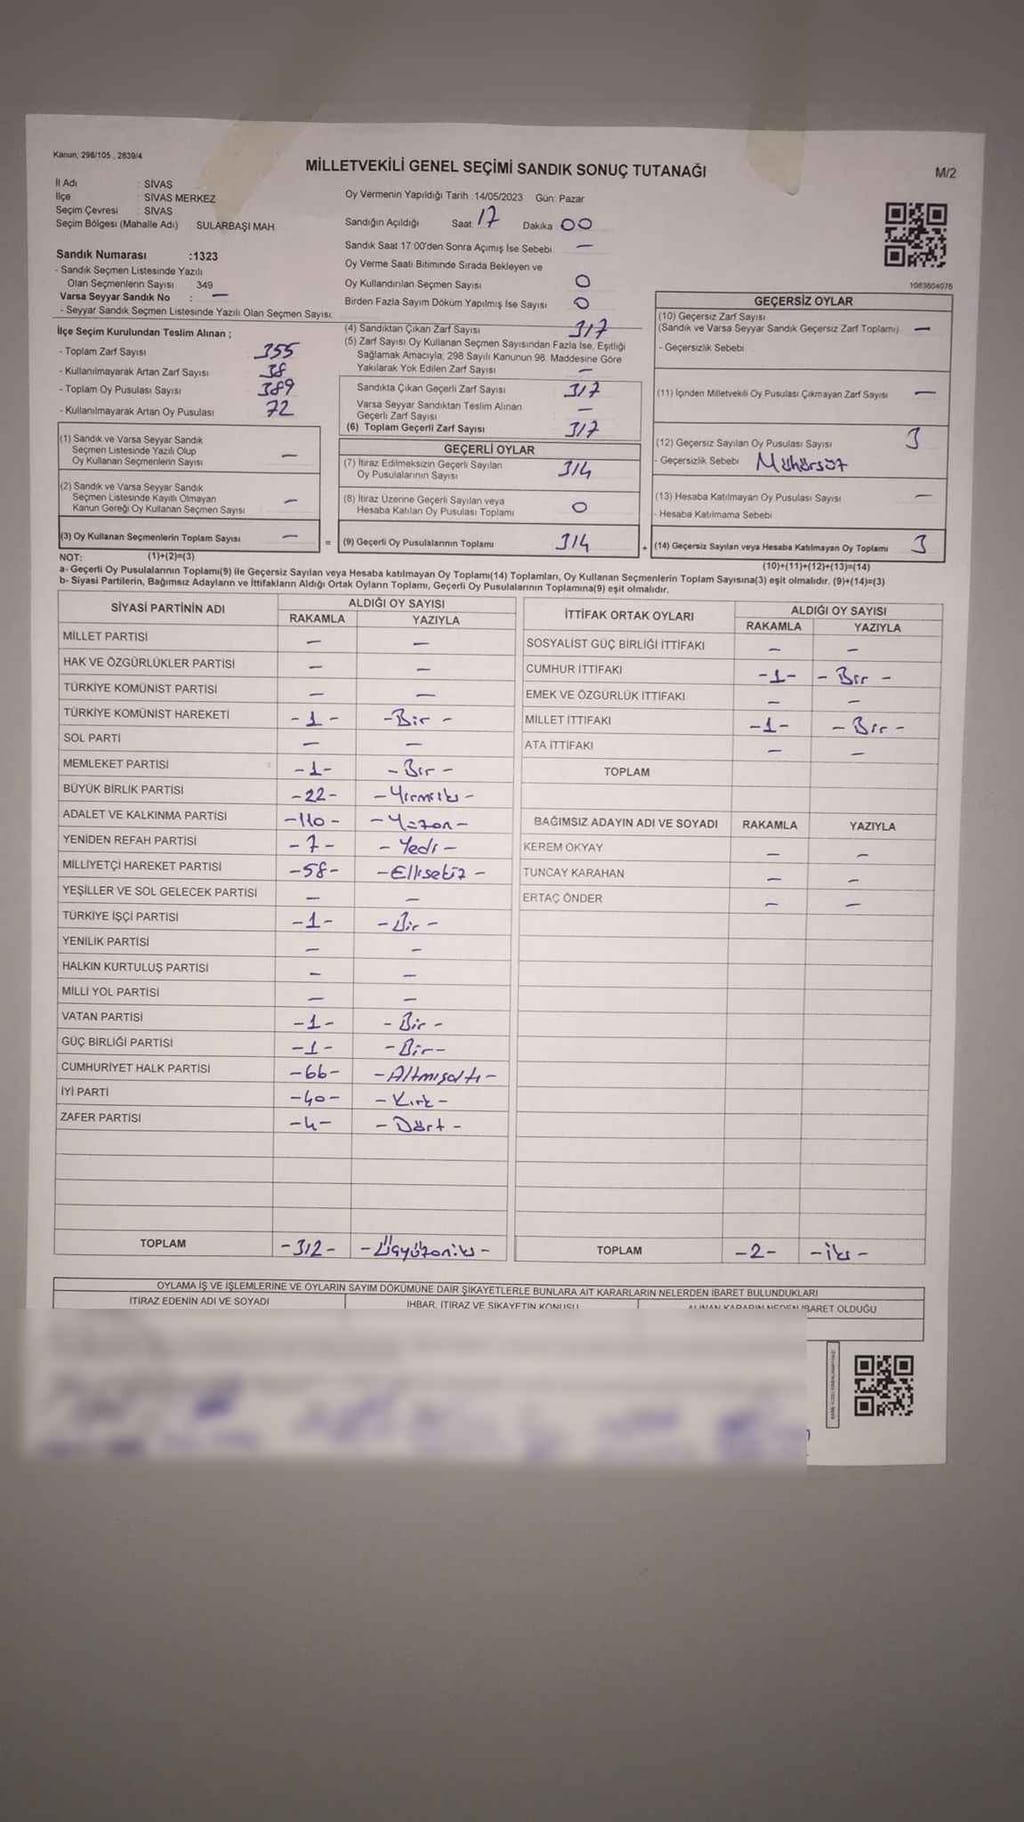 Kanun; 298/105 , 2839/4
MİLLETVEKİLİ GENEL SEÇİMİ SANDIK SONUÇ TUTANAĞI
M/2
İl Adı : SİVAS
İlçe : SİVAS MERKEZ
Seçim Çevresi : SİVAS
Seçim Bölgesi (Mahalle Adı) SULARBAŞI MAH.
Oy Vermenin Yapıldığı Tarih :14/05/2023 Gün: Pazar
Sandığın Açıldığı Saat: 17 Dakika 00
Sandık Saat 17:00'den Sonra Açımış İse Sebebi —
Oy Verme Saati Bitiminde Sırada Bekleyen ve
Oy Kullandırılan Seçmen Sayısı 0
Birden Fazla Sayım Döküm Yapılmış İse Sayısı 0
Sandık Numarası :1323
- Sandık Seçmen Listesinde Yazılı
Olan Seçmenlerin Sayısı 349
Varsa Seyyar Sandık No : —
- Seyyar Sandık Seçmen Listesinde Yazılı Olan Seçmen Sayısı:
İlçe Seçim Kurulundan Teslim Alınan ;
- Toplam Zarf Sayısı 355
- Kullanılmayarak Artan Zarf Sayısı 38
- Toplam Oy Pusulası Sayısı 389
- Kullanılmayarak Artan Oy Pusulası 72
(1) Sandık ve Varsa Seyyar Sandık
Seçmen Listesinde Yazılı Olup
Oy Kullanan Seçmenlerin Sayısı —
(2) Sandık ve Varsa Seyyar Sandık
Seçmen Listesinde Kayıtlı Olmayan
Kanun Gereği Oy Kullanan Seçmen Sayısı —
(3) Oy Kullanan Seçmenlerin Toplam Sayısı —
(4) Sandıktan Çıkan Zarf Sayısı 317
(5) Zarf Sayısı Oy Kullanan Seçmen Sayısından Fazla İse, Eşitliği
Sağlamak Amacıyla, 298 Sayılı Kanunun 98. Maddesine Göre
Yakılarak Yok Edilen Zarf Sayısı —
Sandıkta Çıkan Geçerli Zarf Sayısı 317
Varsa Seyyar Sandıktan Teslim Alınan
Geçerli Zarf Sayısı —
(6) Toplam Geçerli Zarf Sayısı 317
GEÇERLİ OYLAR
(7) İtiraz Edilmeksizin Geçerli Sayılan
Oy Pusulalarının Sayısı 314
(8) İtiraz Üzerine Geçerli Sayılan veya
Hesaba Katılan Oy Pusulası Toplamı 0
= (9) Geçerli Oy Pusulalarının Toplamı 314
1083604076
GEÇERSİZ OYLAR
(10) Geçersiz Zarf Sayısı
(Sandık ve Varsa Seyyar Sandık Geçersiz Zarf Toplamı) —
- Geçersizlik Sebebi
(11) İçinden Milletvekili Oy Pusulası Çıkmayan Zarf Sayısı —
(12) Geçersiz Sayılan Oy Pusulası Sayısı 3
- Geçersizlik Sebebi Mühürsüz
(13) Hesaba Katılmayan Oy Pusulası Sayısı —
- Hesaba Katılmama Sebebi
+ (14) Geçersiz Sayılan veya Hesaba Katılmayan Oy Toplamı 3
NOT: (1)+(2)=(3)
(10)+(11)+(12)+(13)=(14)
a- Geçerli Oy Pusulalarının Toplamı(9) ile Geçersiz Sayılan veya Hesaba katılmayan Oy Toplamı(14) Toplamları, Oy Kullanan Seçmenlerin Toplam Sayısına(3) eşit olmalıdır. (9)+(14)=(3)
b- Siyasi Partilerin, Bağımsız Adayların ve İttifakların Aldığı Ortak Oyların Toplamı, Geçerli Oy Pusulalarının Toplamına(9) eşit olmalıdır.
SİYASİ PARTİNİN ADI ALDIĞI OY SAYISI
RAKAMLA YAZIYLA
MİLLET PARTİSİ — —
HAK VE ÖZGÜRLÜKLER PARTİSİ — —
TÜRKİYE KOMÜNİST PARTİSİ — —
TÜRKİYE KOMÜNİST HAREKETİ -1- -Bir-
SOL PARTİ — —
MEMLEKET PARTİSİ -1- -Bir-
BÜYÜK BİRLİK PARTİSİ -22- -Yirmiiki-
ADALET VE KALKINMA PARTİSİ -110- -Yüzon-
YENİDEN REFAH PARTİSİ -7- -Yedi-
MİLLİYETÇİ HAREKET PARTİSİ -58- -Ellisekiz-
YEŞİLLER VE SOL GELECEK PARTİSİ — —
TÜRKİYE İŞÇİ PARTİSİ -1- -Bir-
YENİLİK PARTİSİ — —
HALKIN KURTULUŞ PARTİSİ — —
MİLLİ YOL PARTİSİ — —
VATAN PARTİSİ -1- -Bir-
GÜÇ BİRLİĞİ PARTİSİ -1- -Bir-
CUMHURİYET HALK PARTİSİ -66- -Altmışaltı-
İYİ PARTİ -40- -Kırk-
ZAFER PARTİSİ -4- -Dört-
TOPLAM -312- -Üçyüzoniki-
İTTİFAK ORTAK OYLARI ALDIĞI OY SAYISI
RAKAMLA YAZIYLA
SOSYALİST GÜÇ BİRLİĞİ İTTİFAKI — —
CUMHUR İTTİFAKI -1- -Bir-
EMEK VE ÖZGÜRLÜK İTTİFAKI — —
MİLLET İTTİFAKI -1- -Bir-
ATA İTTİFAKI — —
TOPLAM
BAĞIMSIZ ADAYIN ADI VE SOYADI RAKAMLA YAZIYLA
KEREM OKYAY — —
TUNCAY KARAHAN — —
ERTAÇ ÖNDER — —
TOPLAM -2- -iki-
OYLAMA İŞ VE İŞLEMLERİNE VE OYLARIN SAYIM DÖKÜMÜNE DAİR ŞİKAYETLERLE BUNLARA AİT KARARLARIN NELERDEN İBARET BULUNDUKLARI
İTİRAZ EDENİN ADI VE SOYADI İHBAR, İTİRAZ VE ŞİKAYETİN KONUSU ALINAN KARARIN NEDEN İBARET OLDUĞU